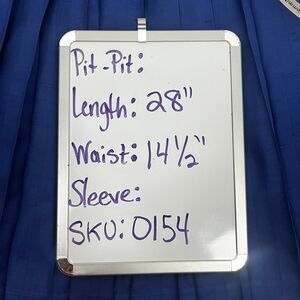 Pit-Pit:
Length: 28"
Waist: 14½"
Sleeve:
SKU: 0154